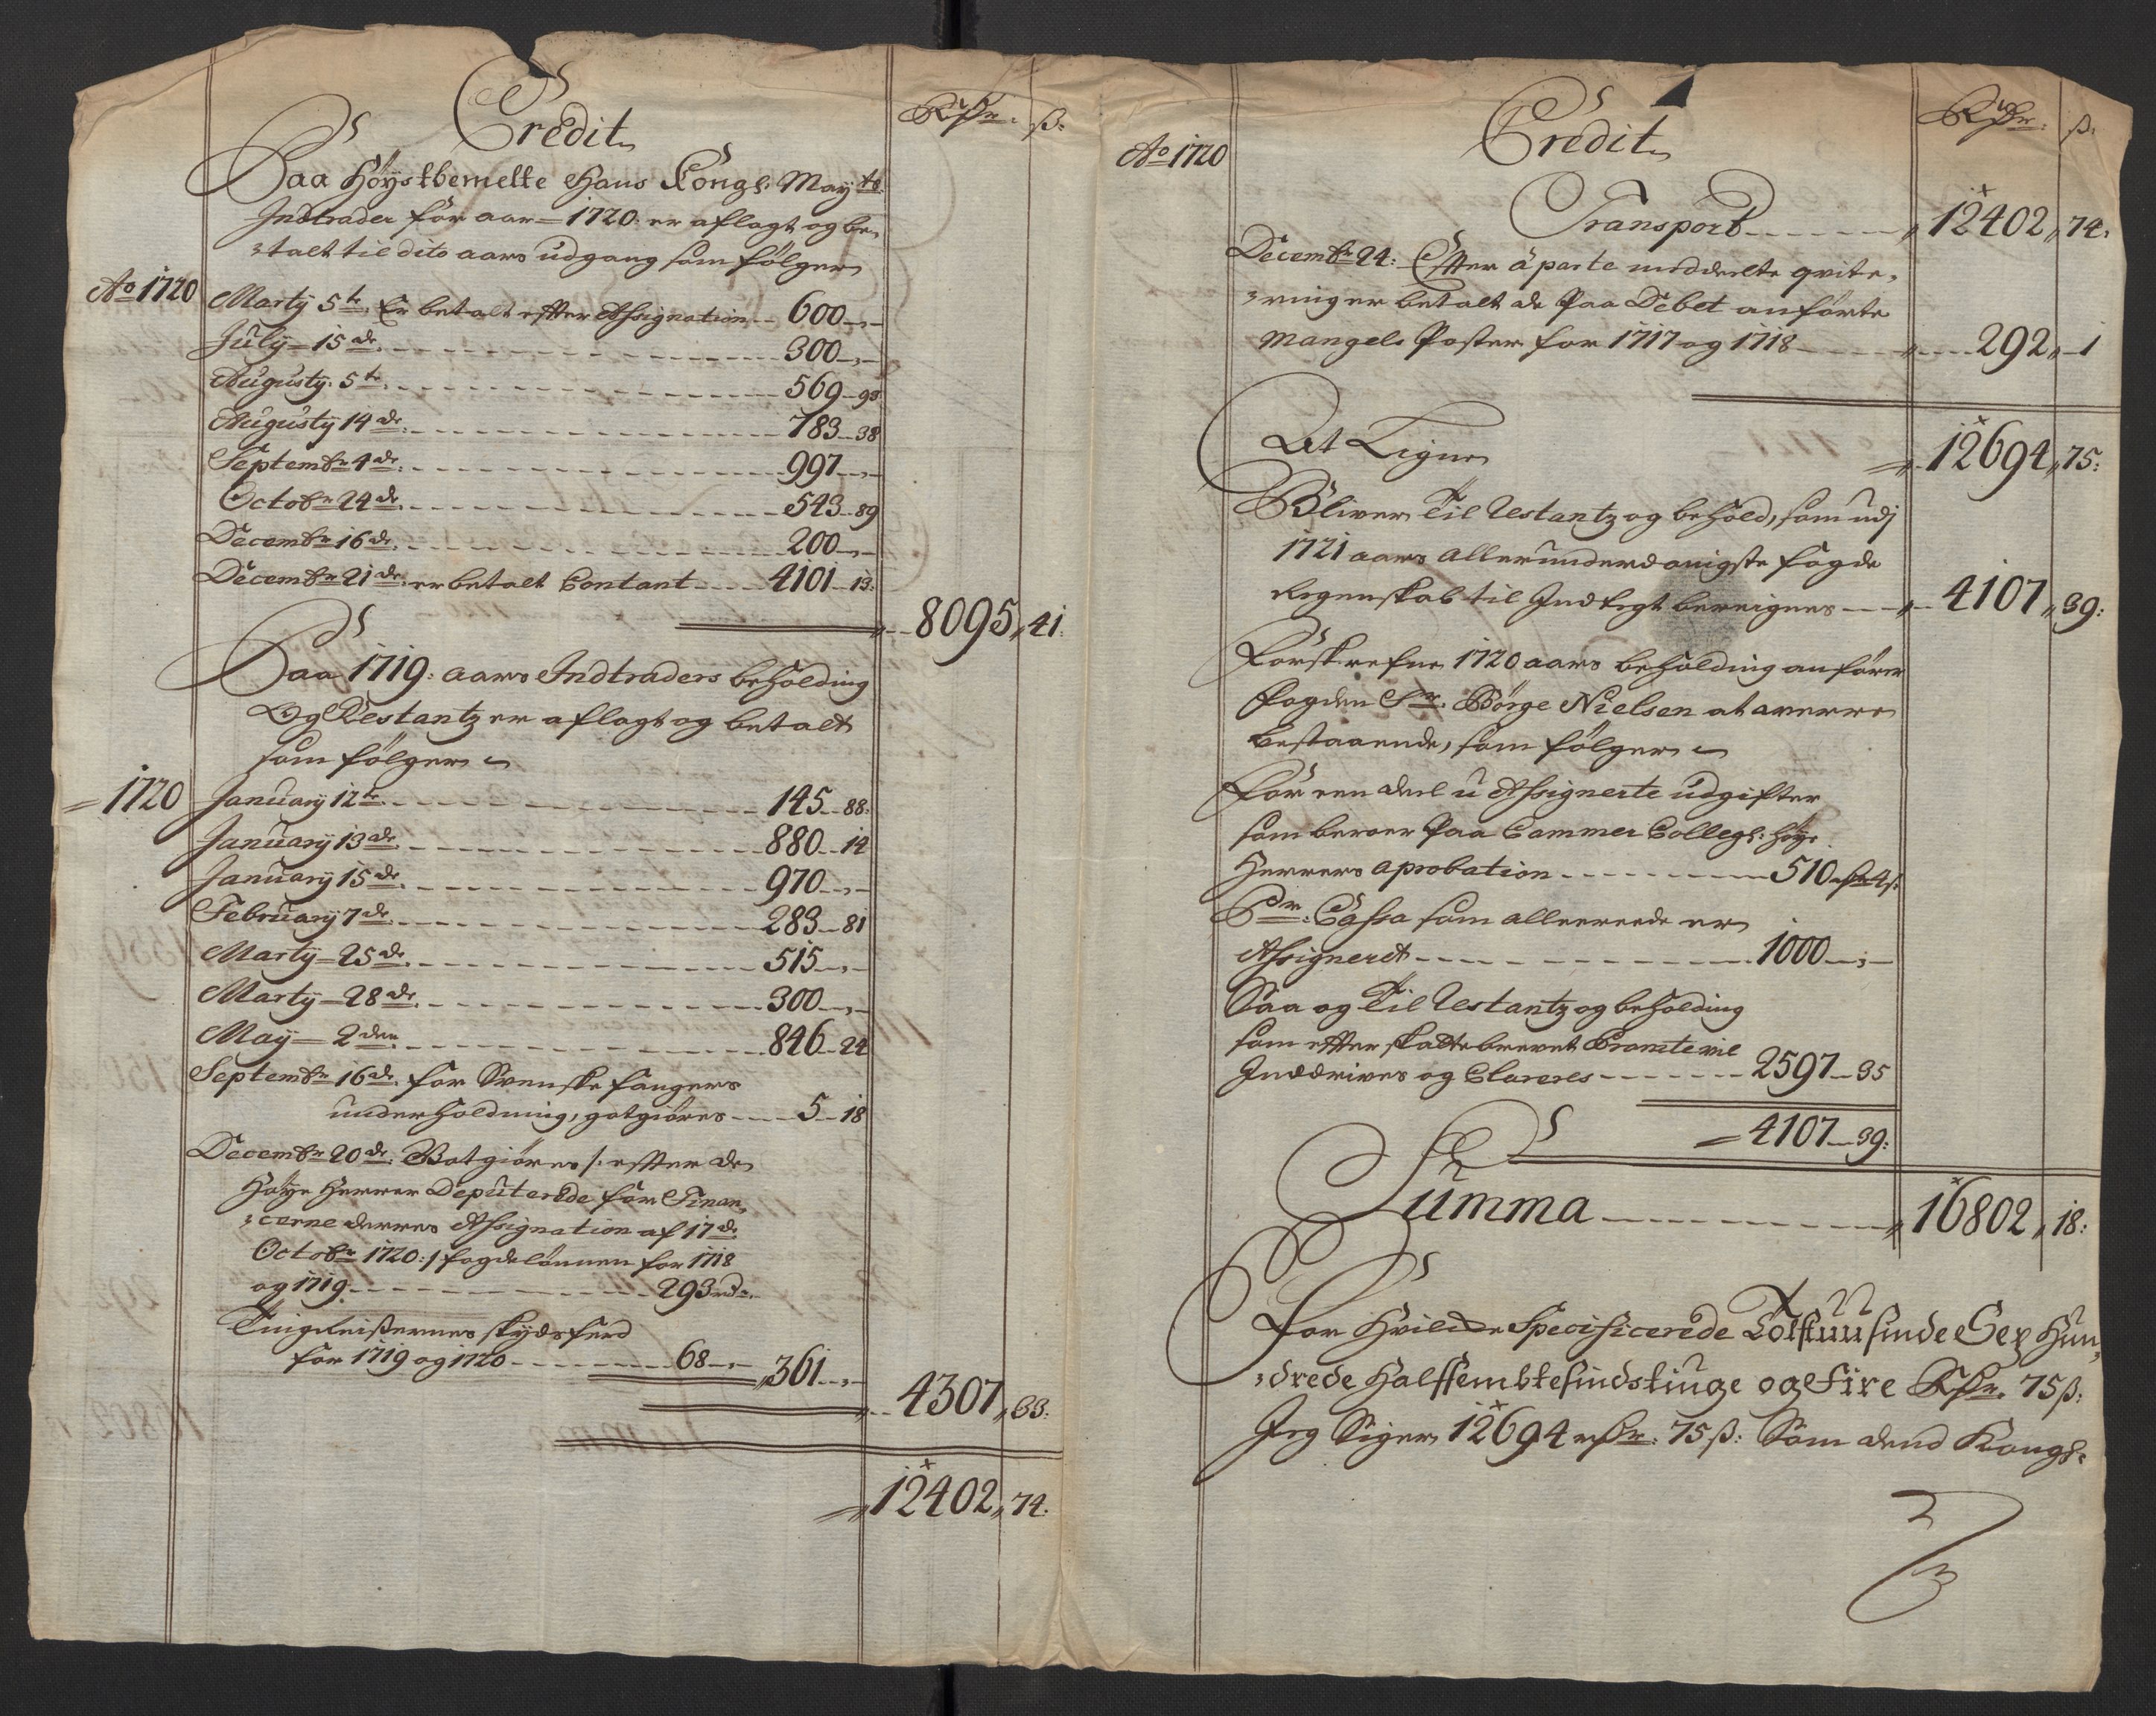 Credit
Rdr: ß:
Paa Höystbemelte Hans Kongl: Mayts:
Indtrader for aar 1720: er aflagt og be-
talt til dito aars udgang som fölger
Ao 1720 Marty 5te Er betalt effter Assignation 600 - -
July 15de 300 - -
Augusty: 5te 569 - 93
Augusty 14de 783 - 38
Septembr 4de 997 - -
Octobr 24de 543 - 89
Decembr 16de 200 - -
Decembr 21de er betalt Contant 4101 - 13:
8095 „ 41:
Paa 1719: aars Indtraders beholding
Og Restantz er aflagt og betalt
som fölger
1720 January 12te 145 - 88:
January 13de 880 - 14
January 15de 970 - -
February 7de 283 - 81
Marty 25de 515 - -
Marty 28de 300 - -
May 2den 846 - 24
Septembr 16de for Svenske fangers
underholdning, gotgiöres 5 - 18
Decembr 20de Gotgiöres /: effter de
Höye Herrer Deputerede for Finan-
cerne derres Assignation af 17de
Octobr 1720 :/ fogdelönnen for 1718
og 1719 293 rdr
Tingreisernes skydsferd
for 1719 og 1720 68 - - 361 - -
4307 „ 33:
12402 „ 74:
Credit
Rdr: ß:
Ao 1720
Transport 12402 „ 74:
Decembr 24: Effter aparte meddeelte qvite-
ringer betalt de Paa Debet anförte
Mangels Poster for 1717 og 1718 292 „ 1
At Ligne 12694 „ 75:
Bliver Til Restantz og behold, som udj
1721 aars allerunderdanigste fogde
Regenskab til Indtegt bereignes 4107 „ 39:
Forskrefne 1720 aars beholding anförer
fogden Sr. Börge Nielsen at averre
bestaaende, som fölger
For een deel u Assignerte udgifter
som beroer Paa Cammer Collegs: höye
Herrers aprobation 510 rdr 4 ß:
Pr: Cassa som allereede er
Assigneret 1000 - -
Saa og Til Restantz og beholding
som effter skattebrevet Promte vil
Inddrives og Clareres 2597 - 35
4107 - 39:
Summa 16802 „ 18:
For hvilcke Specificerede Tolftuusinde Sex Hun-
drede Halffembtesindstiuge og Fire Rdr. 75 ß:
Jeg Siger 12694 rdr: 75 ß: Som dend Kongl: